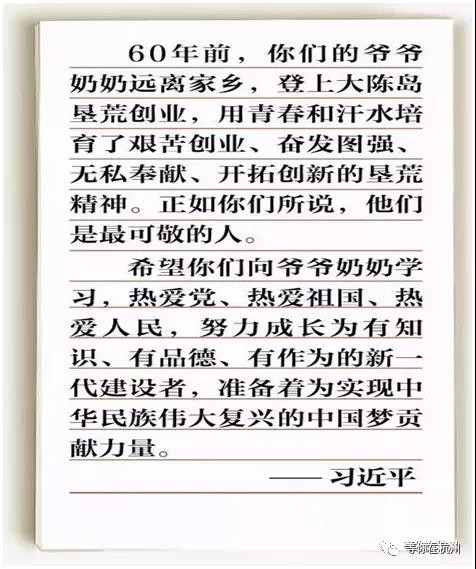 60年前，你们的爷爷
奶奶远离家乡，登上大陈岛
垦荒创业，用青春和汗水培
育了艰苦创业、奋发图强、
无私奉献、开拓创新的垦荒
精神。正如你们所说，他们
是最可敬的人。
希望你们向爷爷奶奶学
习，热爱党、热爱祖国、热
爱人民，努力成长为有知
识、有品德、有作为的新一
代建设者，准备着为实现中
华民族伟大复兴的中国梦贡
献力量。
——习近平
等你在杭州